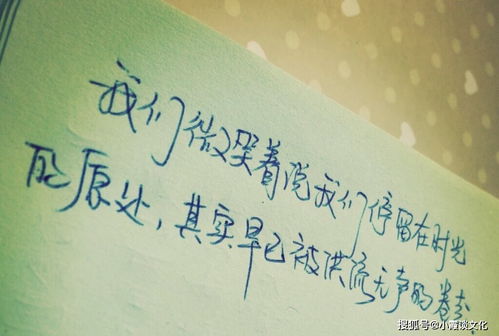 我们微笑着说我们停留在时光
的原处，其实早已被洪流无声的卷去
搜狐号@小霞谈文化